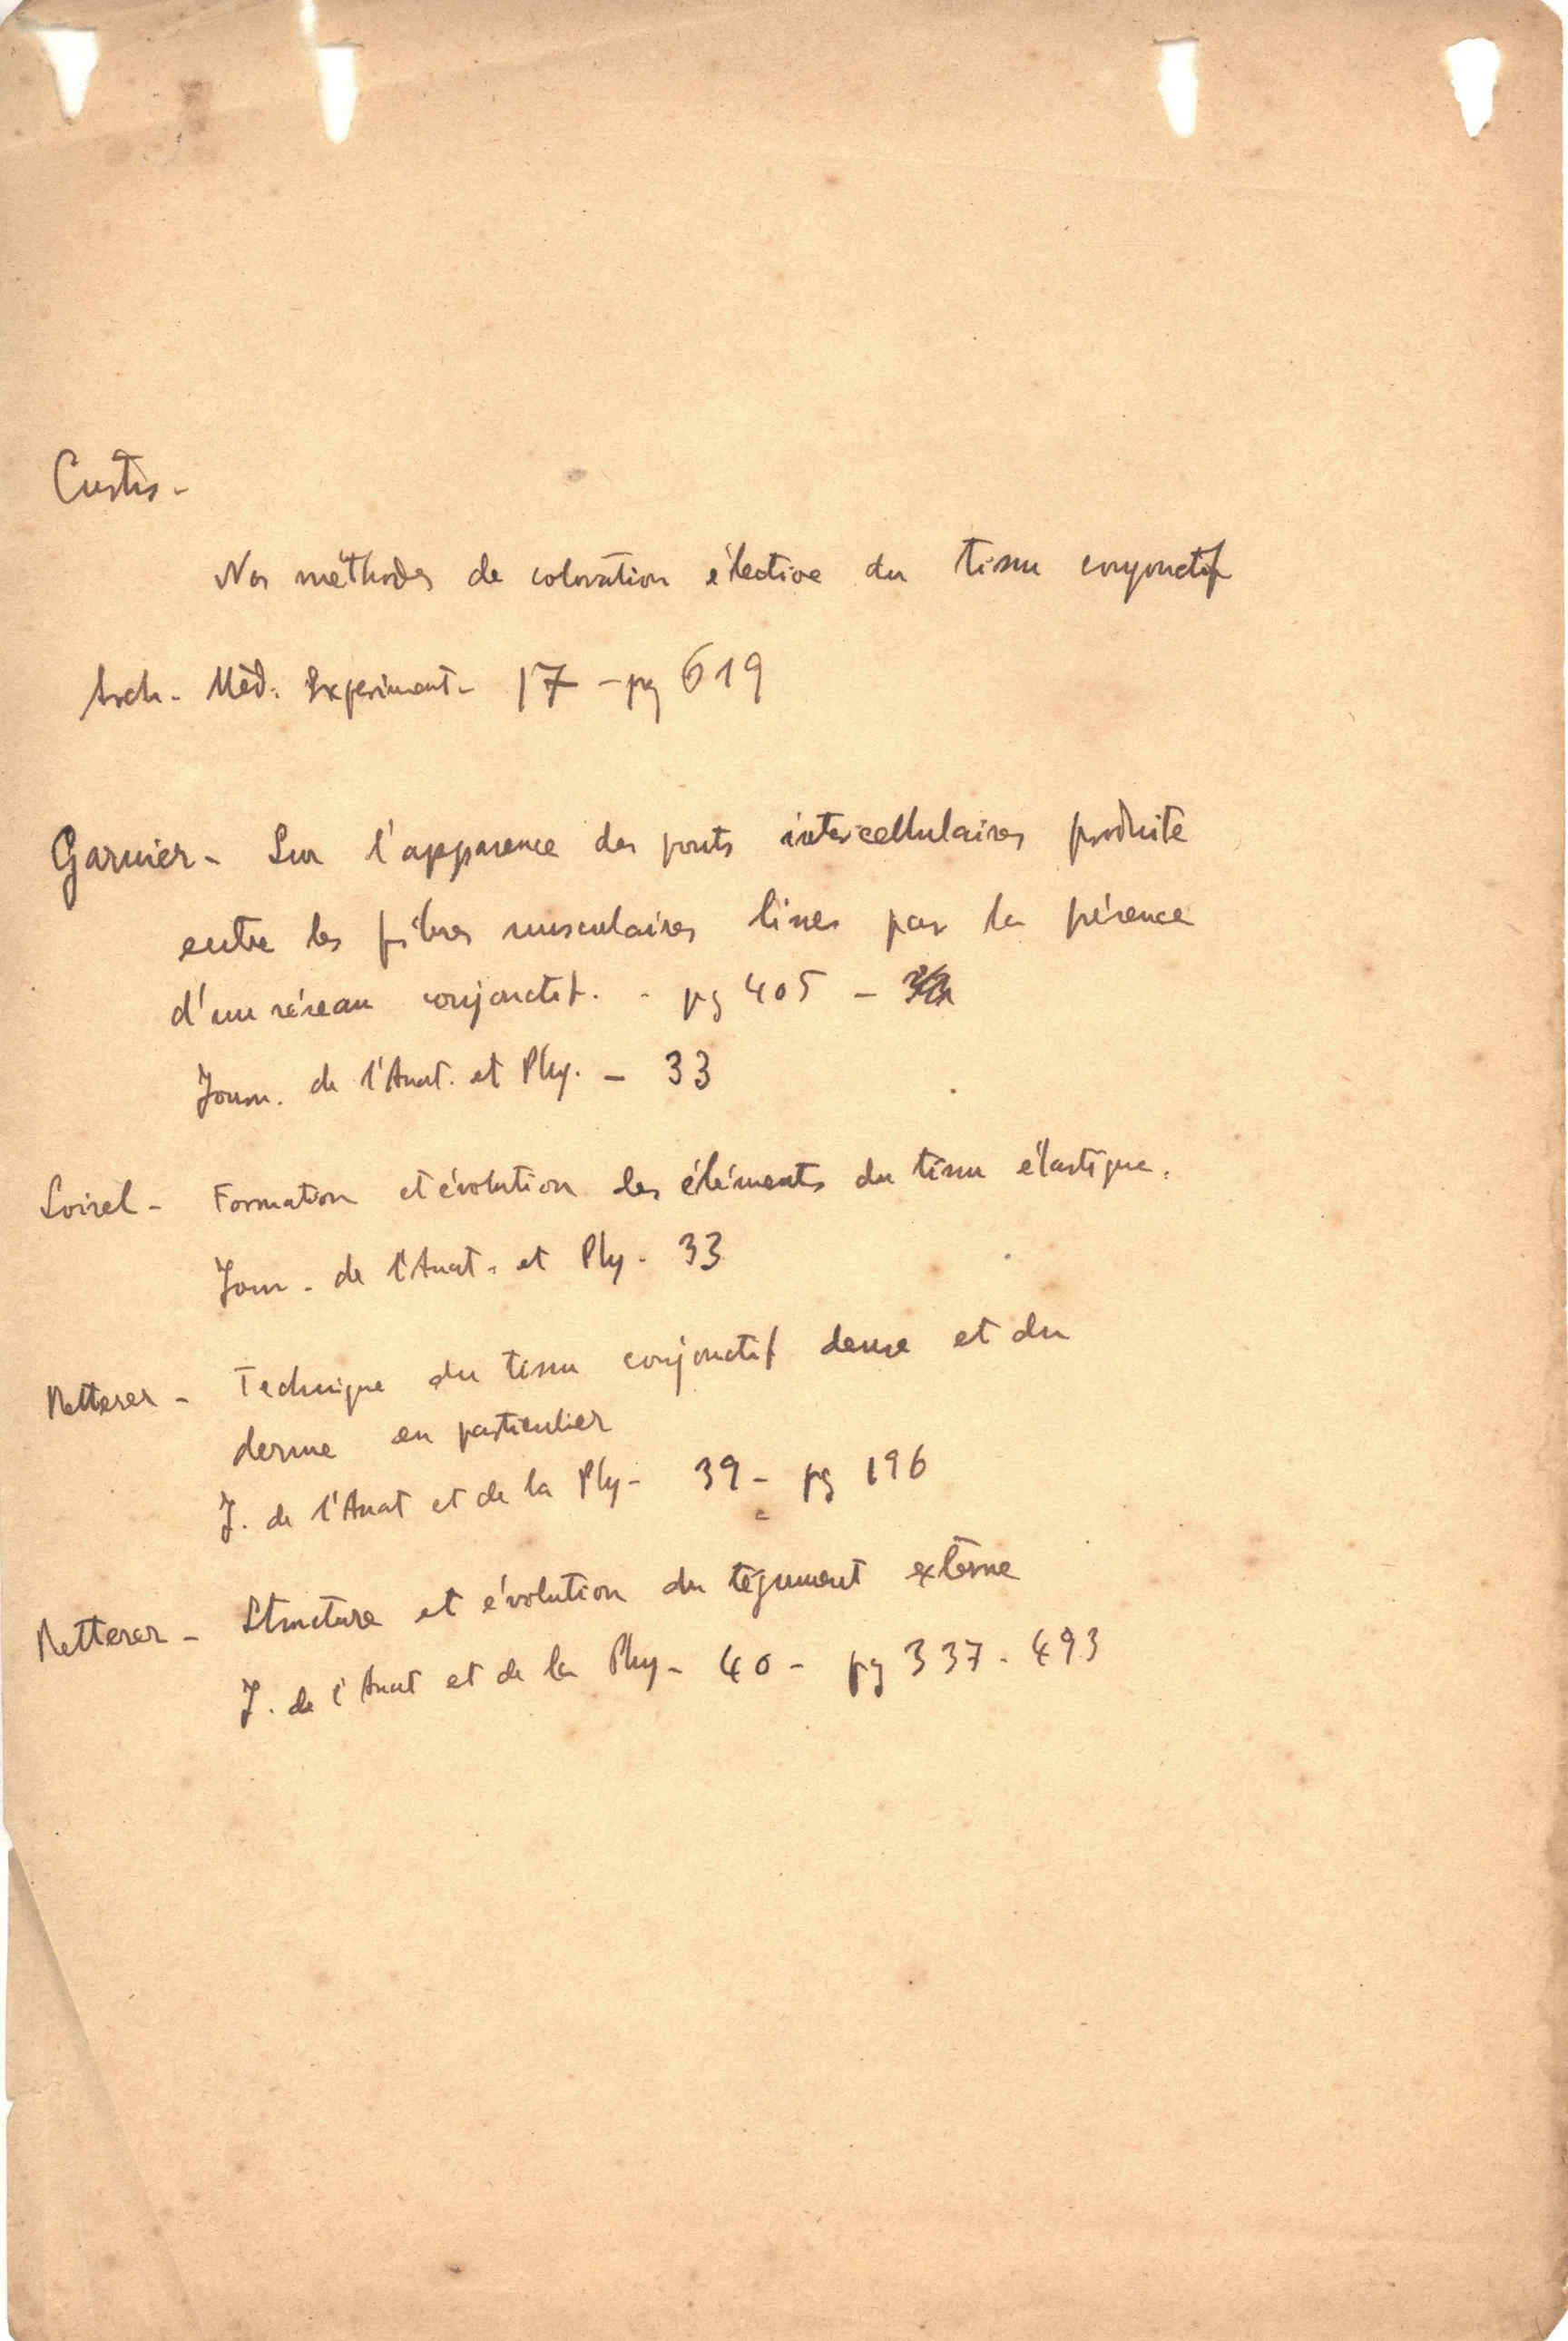 Curtis -
Nos méthodes de coloration élective du tissu conjonctif
Arch. Méd. Experiment - 17 - pg 619
Garnier - Sur l'apparence des ponts intercellulaires produite
entre les fibres musculaires lisses par la présence
d'un réseau conjonctif. - pg 405 -
Journ. de l'Anat. et Phy. - 33
Loisel - Formation et évolution des éléments du tissu élastique.
Jour. de l'Anat. et Phy - 33
Retterer - Technique du tissu conjonctif dense et du
derme en particulier
J. de l'Anat et de la Phy - 39 - pg 196
Retterer - Structure et évolution du tégument externe
J. de l'Anat et de la Phy - 40 - pg 337 - 493